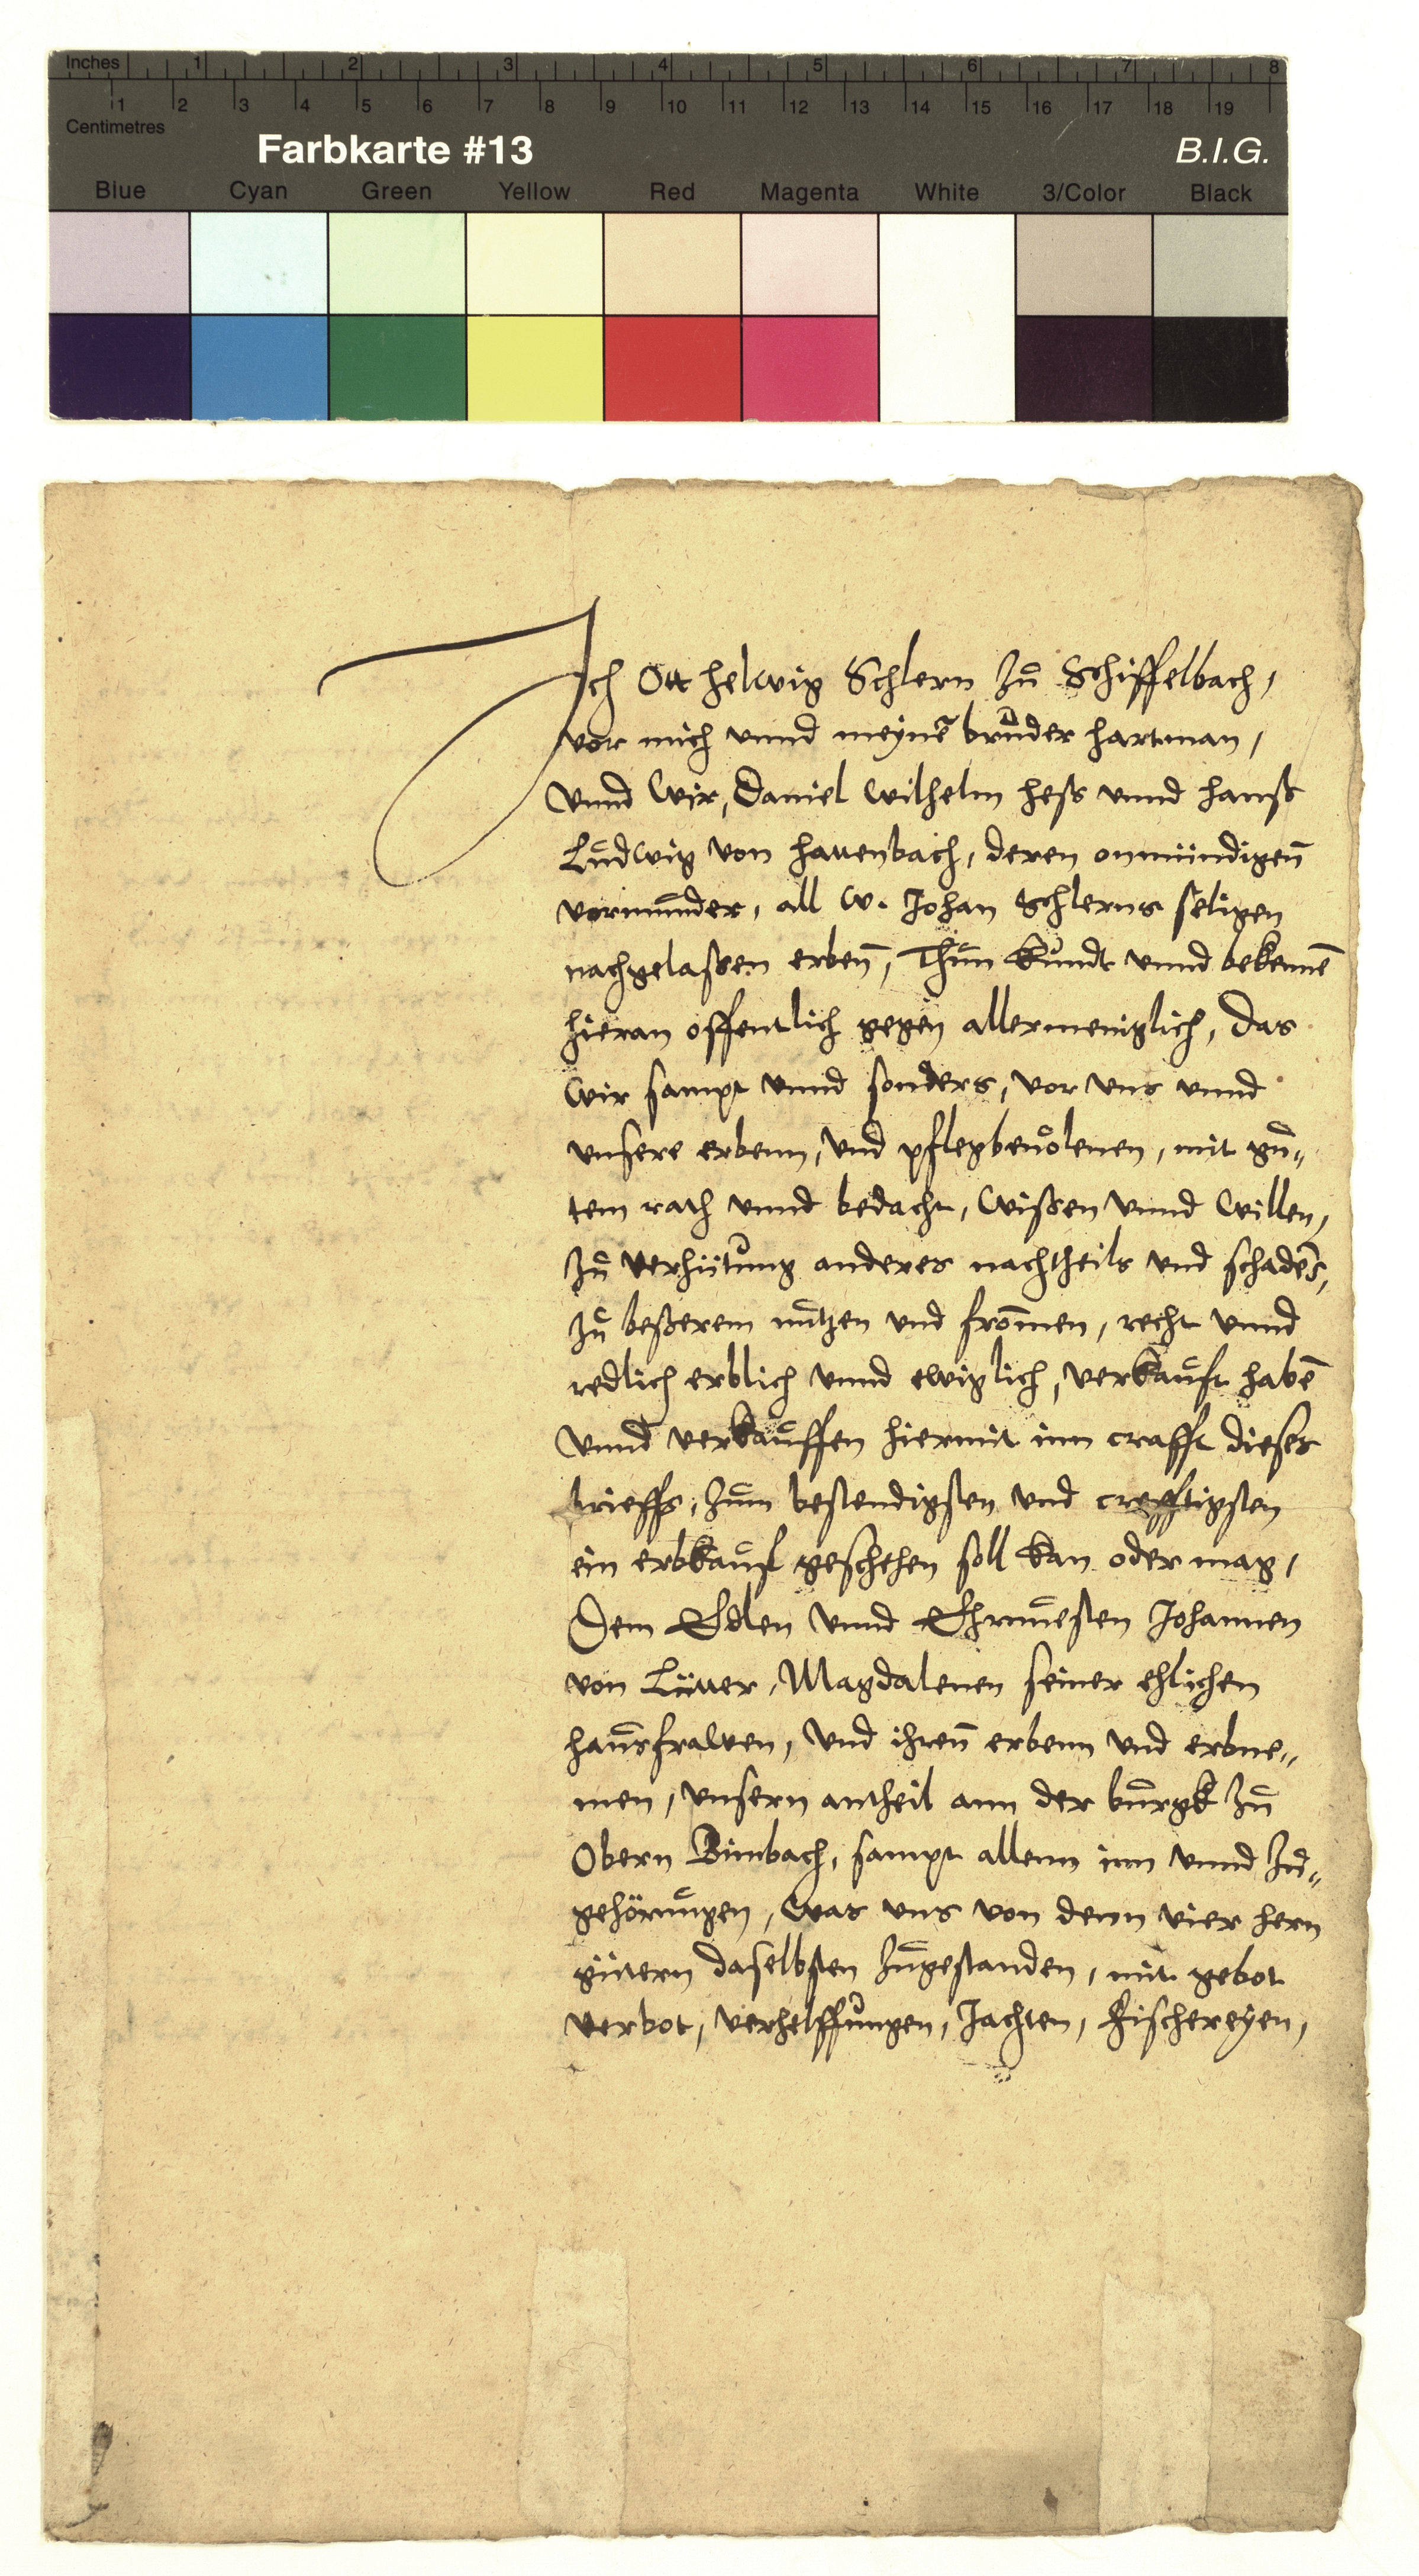 Inches 1 2 3 4 5 6 7 8
1 2 3 4 5 6 7 8 9 10 11 12 13 14 15 16 17 18 19
Centimetres
Farbkarte #13 B.I.G.
Blue Cyan Green Yellow Red Magenta White 3/Color Black
Ich Ott helwig Schlern zu Schiffelbach,
vor mich vnnd meyne͂ bruder hartman,
vnnd Wir, Daniel Wilhelm hess vnnd hanss
Ludwig von hauenbach, deren onmündigen̄
vormunder, all W. Johan Schlerns seligen
nachgelaßen erben̄, Thun kundt vnnd bekenne͂
hieran offentlich gegen allermeniglich, Das
Wir sampt vnnd sonders, vor vns vnnd
vnsere erbenn, vnd pflegbeuolenen, mit gu„
tem rath vnnd bedacht, Wißen vnnd Willen,
zu verhütung anderes nachtheils vnd schade͂s,
zu beßerem nutzen vnd from̄en, recht vnnd
redlich erblich vnnd ewiglich, verkauft habe͂
vnnd verkauffen hiermit inn crafft dieses
brieffs, zum bestendigsten vnd crefftigsten
ein erbkauf geschehen soll kan oder mag,
Dem Edlen vnnd Ehrnuesten Johannen
von Lüuer, Magdalenen seiner ehlichen
hausfrawen, vnd ihren̄ erbenn vnd erbne„
men, vnsern antheil ann der burgk zu
Obern Bimbach, sampt allenn inn vnnd zu„
gehörungen, Was vns von denn vier hern
gütern daselbsten zugestanden, mit gebot
verbot, verhelffungen, Jachten, Fischereyen,